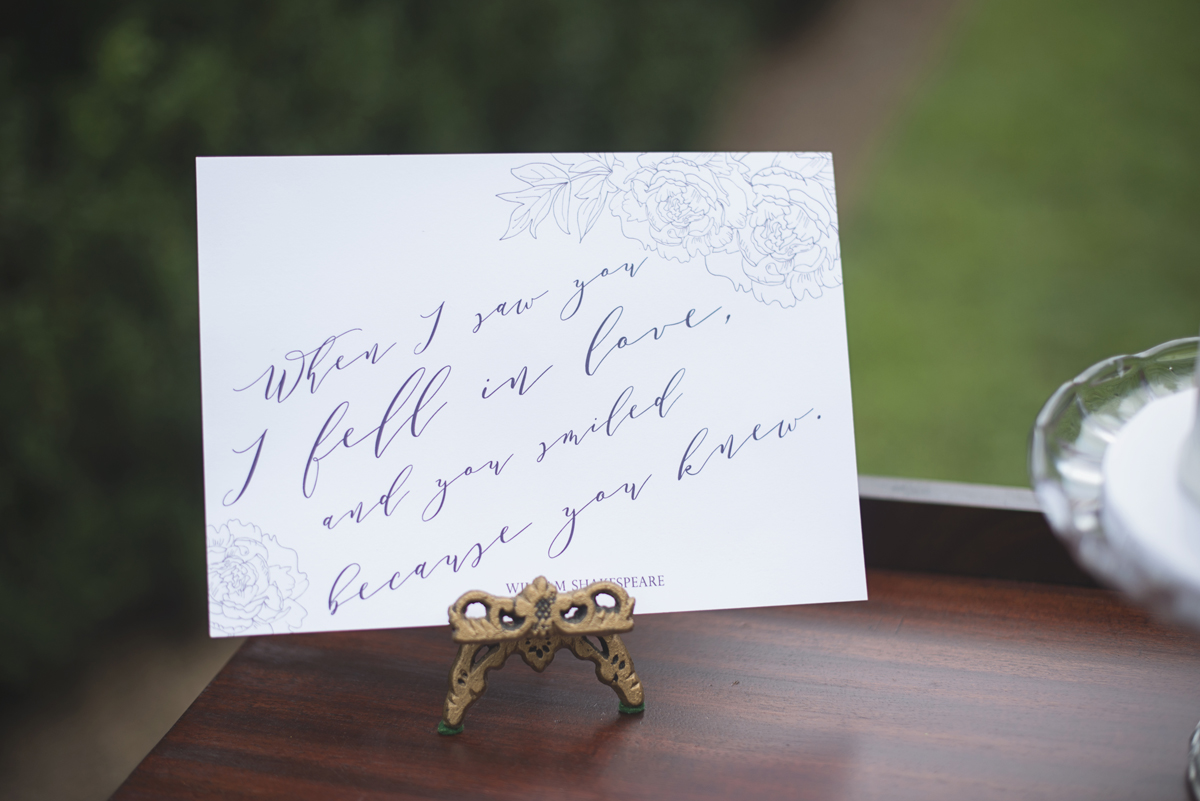 When I saw you
I fell in love,
and you smiled
because you knew.
WILLIAM SHAKESPEARE